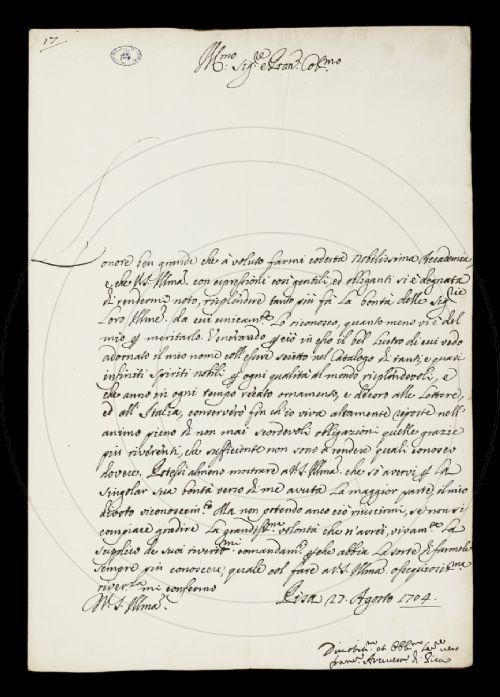 17
Ill.mo
Sig.re e Pron. Col.mo
L'onore ben grande che a voluto farmi codesta Nobilissima Accademia
e che V.S. Illma. con espressioni così gentili, ed obliganti si è degnata
di rendermi noto, risplendere tanto più fà la bontà delle Sig.rie
Loro Illme. da cui unicam.te Lo riconosco, quanto meno vi è del
mio p meritarlo. Venerando p ciò in esso il bel Lustro di cui vedo
adornato il mio nome coll'essere scritto nel Catalogo di tanti, e quasi
infiniti Spiriti nobili p ogni qualità al mondo risplendevoli, e
che anno in ogni tempo recato ornamento, e decoro alle Lettere,
ed all'Italia, conserverò fin ch'io viva altamente riposte nell'
animo pieno di non mai scordevoli obligazioni quelle grazie
più riverenti, che sufficiente non sono a rendere quali conosco
dovere. Potessi almeno mostrare a V.S. Illma. che sò avervi p La
Singolar Sua bontà verso di me avuta La maggior parte il mio
divoto riconoscim.to Ma non potendo anco ciò riuscirmi, se non si
compiace gradire La grandiss.ma volontà che n'avrei, vivam.te La
supplico de' suoi riveriti.mi comandam.ti p che abbia La sorte di farmele
sempre più conoscere; quale col fare a V.S. Illma. ossequiosis.ma
river.za mi confermo
Di V.S. Illma.
Pisa 27. Agosto 1704.
Divotis.mo ed Obb.mo Se.re vero
Fran.co Arcivesc.o di Pisa